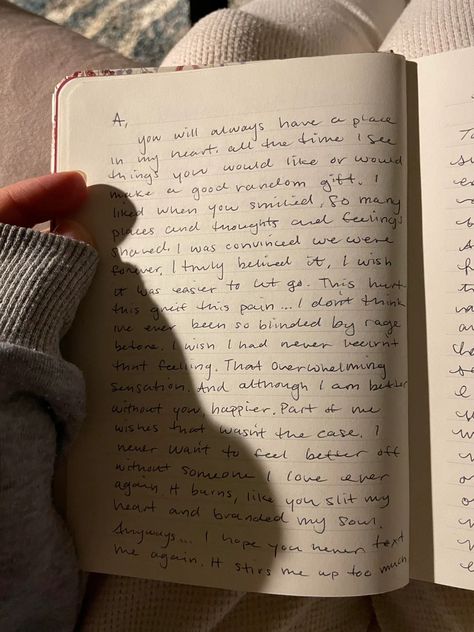 A,
you will always have a place
in my heart. all the time I see
things you would like or would
make a good random gift. I
liked when you smiled. So many
places and thoughts and feelings
shared. I was convinced we were
forever. I truly belived it. I wish
it was easier to let go. This hurt
this greif this pain... I don't think
ive ever been so blinded by rage
before. I wish I had never
that feeling. That overwhelming
sensation. And although I am better
without you, happier. Part of me
wishes that wasn't the case. I
never want to feel better off
without someone I love ever
again. It burns, like you slit my
heart and branded my soul.
Anyways... I hope you never text
me again. It stirs me up too much